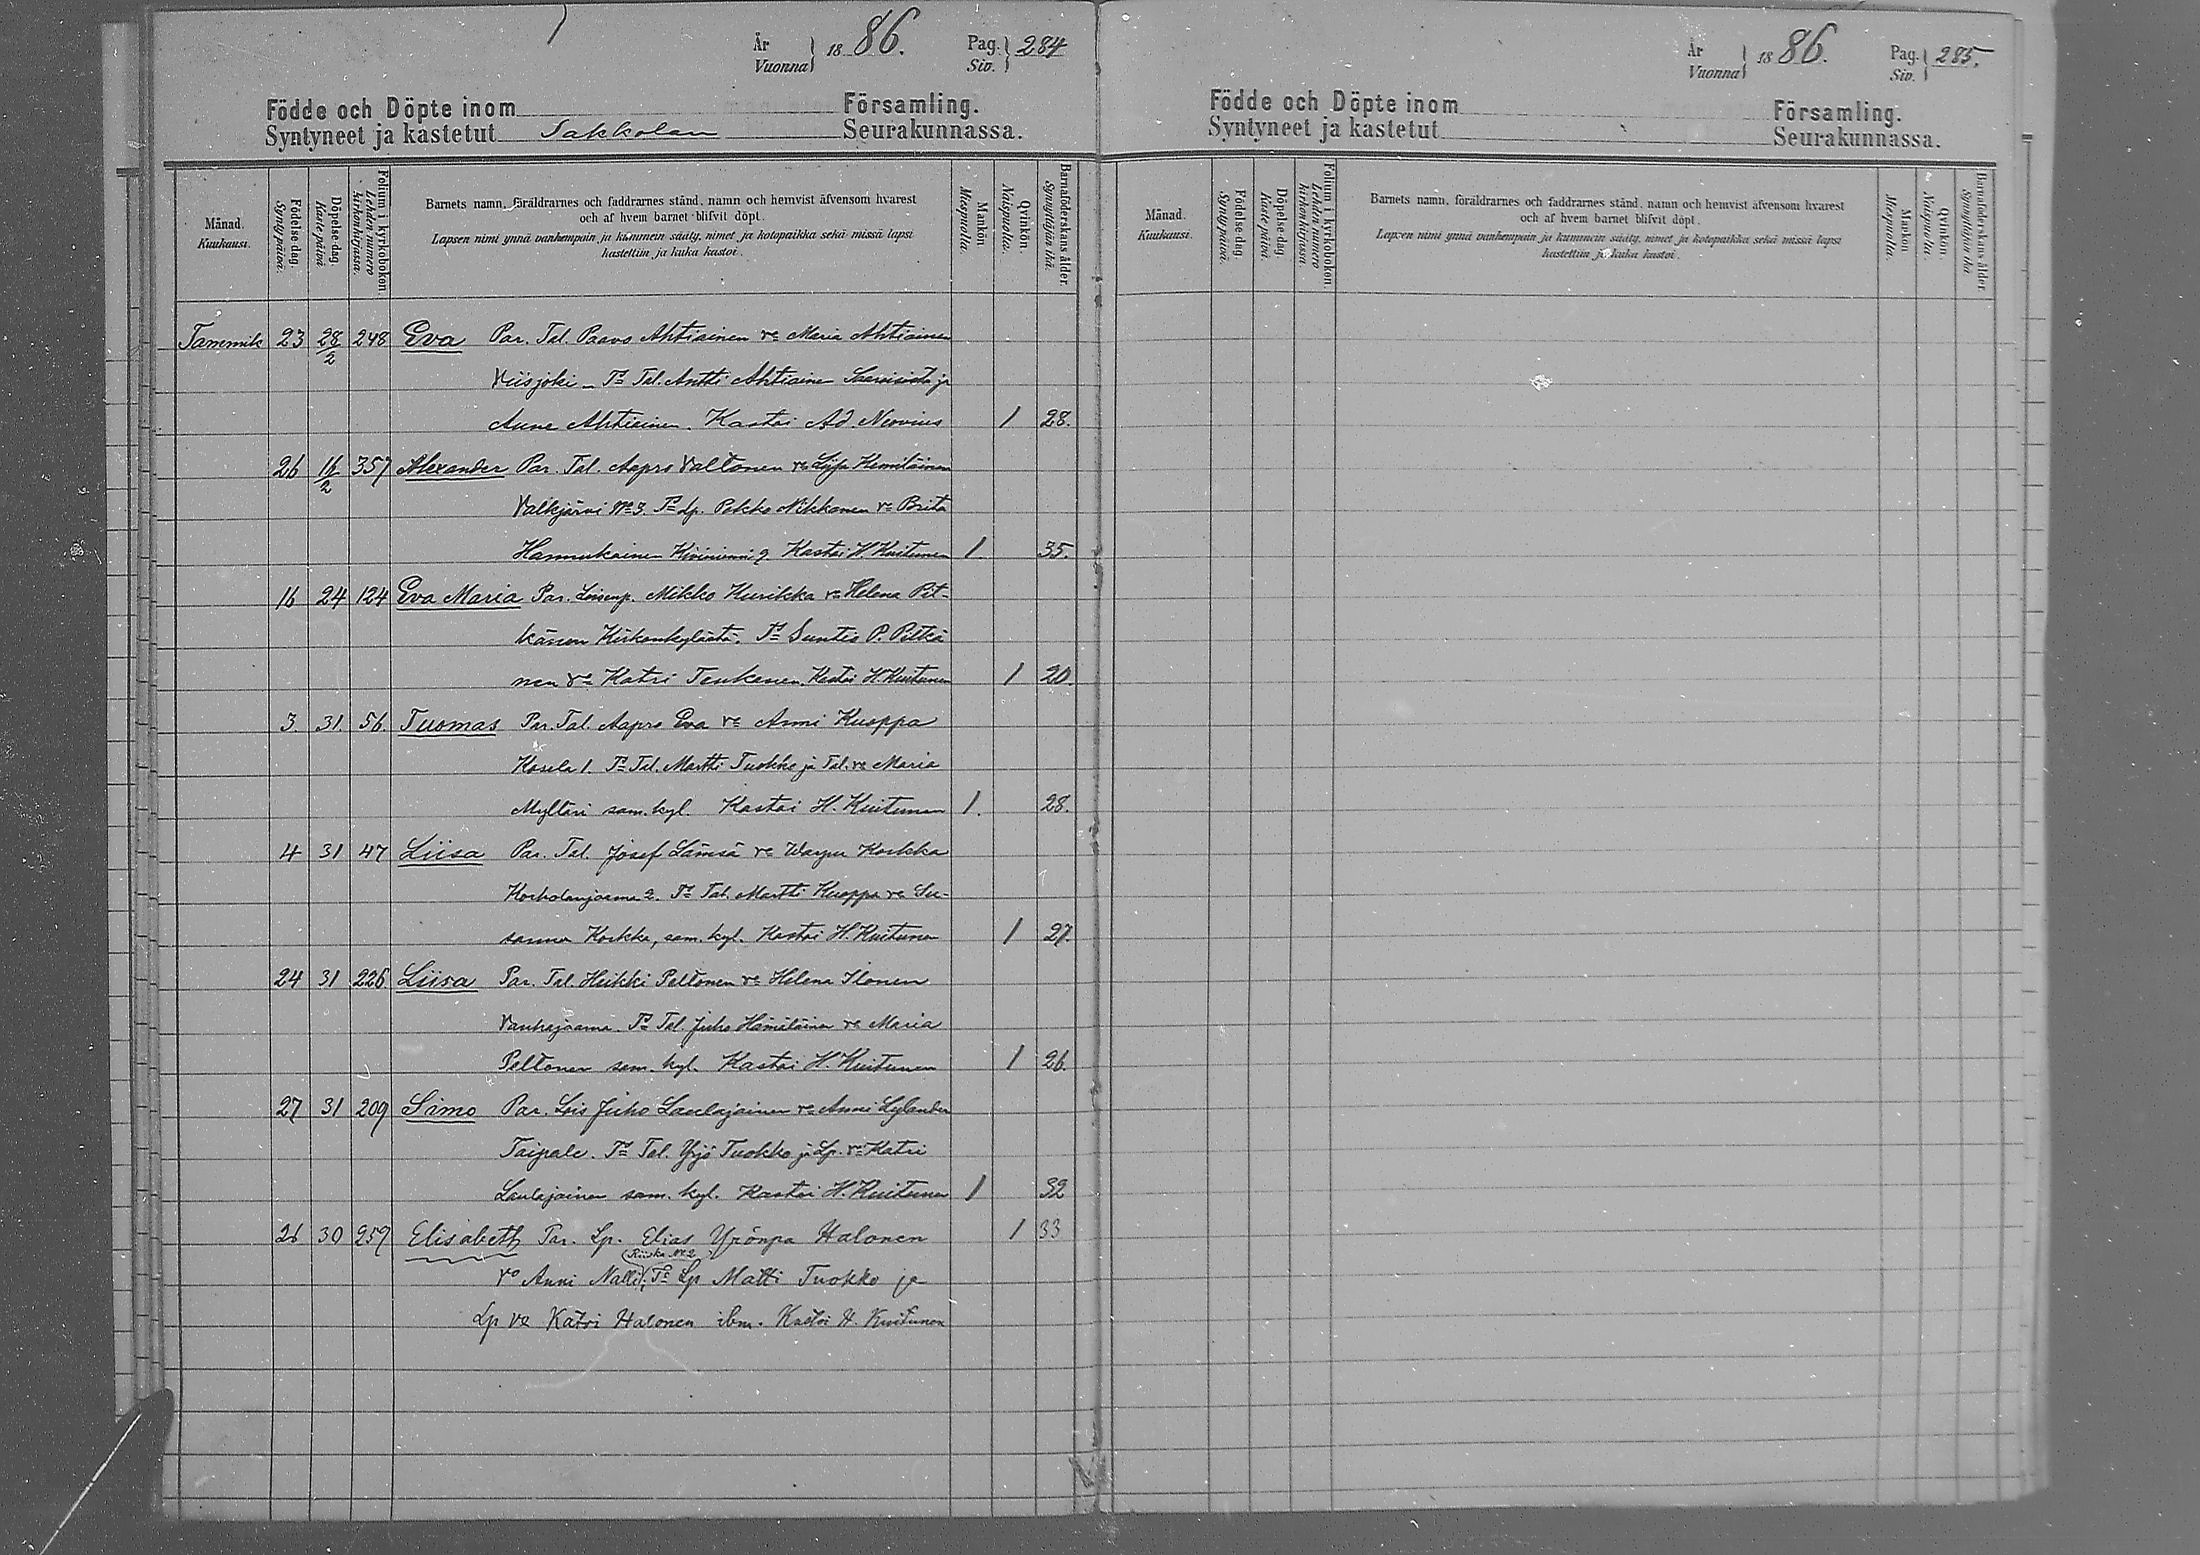 År
Vuonna } 1886.
Pag.
Siv. } 284
Födde och Döpte inom Församling.
Syntyneet ja kastetut Sakkolan Seurakunnassa.
Månad.
Kuukausi.
Födelse dag.
Synty päivä.
Döpelse dag.
Kaste päivä
Folium i kyrkoboken.
Lehden numero
kirkonkirjassa.
Barnets namn, föräldrarnes och faddrarnes stånd, namn och hemvist äfvensom hvarest
och af hvem barnet blifvit döpt.
Lapsen nimi ynnä vanhempain ja kummein sääty, nimet ja kotopaikka sekä missä lapsi
kastettiin ja kuka kastoi.
Mankön.
Miespuolia.
Qvinkön.
Naispuolia.
Barnaföderskans ålder.
Synnyttäjän ikä.
Tammik 23 28/2 248 Eva Par. Tal. Paavo Ahtiainen va Maria Ahtiainen
Viisjoki – Td Tal. Antti Ahtiaine ja
Anna Ahtiainen. Kastoi Ad Neovius 1 28.
26 16/2 357 Alexander Par. Tal. Aapro Valtonen va Liisa Hämäläinen
Valkjärvi No 3. Td Lp. Pekko Nikkanen va Brita
Hannukainen Kiviniemi 2 Kastoi H Kuitunen 1. 35.
16 24 124 Eva Maria Par. Mikko Kurikka va Helena Pit-
känen Kirkonkylästä. Td Suntio P. Pitkä
nen va Katri Teukanen. Kastoi H Kuitunen 1 20.
3. 31. 56. Tuomas Par. Tal. Aapro Eva va Anni Kuoppa
Hasela 1. Td Tal. Martti Tuokko ja Tal. va Maria
Mylläri sam. kyl. Kastoi H. Kuitunen 1. 28.
4 31 47 Liisa Par. Tal. Josef Lämsä va Warpu Korkka
Korholanjaama 2. Td Tal. Martti Kuoppa va Su-
sanna Korkka, sam. kyl. Kastoi H. Kuitunen 1 27.
24 31 226 Liisa Par. Tal. Heikki Peltonen va Helena Ilonen
Vanhajaama Td Tal. Juho Hämäläinen va Maria
Peltonen sam. kyl. Kastoi H. Kuitunen 1 26.
27 31 209 Simo Par. Lois Juho Laulajainen va Anni Lylander
Taipale. Td Tal. Yrjö Tuokko ja Lp. va Katri
Laulajainen sam. kyl. Kastoi H. Kuitunen 1 32
26 30 259 Elisabeth Par. Lp. Elias Yrönpa Halonen 1 33
(Riiska No 2)
vo Anni Nalli, Td Lp Matti Tuokko ja
Lp va Katri Halonen ibm. Kastoi H. Kuitunen
År
Vuonna } 1886.
Pag.
Siv. } 285.
Födde och Döpte inom Församling.
Syntyneet ja kastetut Seurakunnassa.
Månad.
Kuukausi.
Födelse dag.
Synty päivä.
Döpelse dag.
Kaste päivä.
Folium i kyrkoboken.
Lehden numero
kirkonkirjassa.
Barnets namn, föräldrarnes och faddrarnes stånd, namn och hemvist äfvensom hvarest
och af hvem barnet blifvit döpt.
Lapsen nimi ynnä vanhempain ja kummein sääty, nimet ja kotopaikka sekä missä lapsi
kastettiin ja kuka kastoi.
Mankön.
Miespuolia.
Qvinkön.
Naispuolia.
Barnaföderskans ålder.
Synnyttäjän ikä.